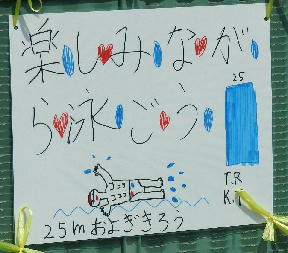 楽しみなが
ら泳ごう
25
T.R
K.T
25mおよぎきろう